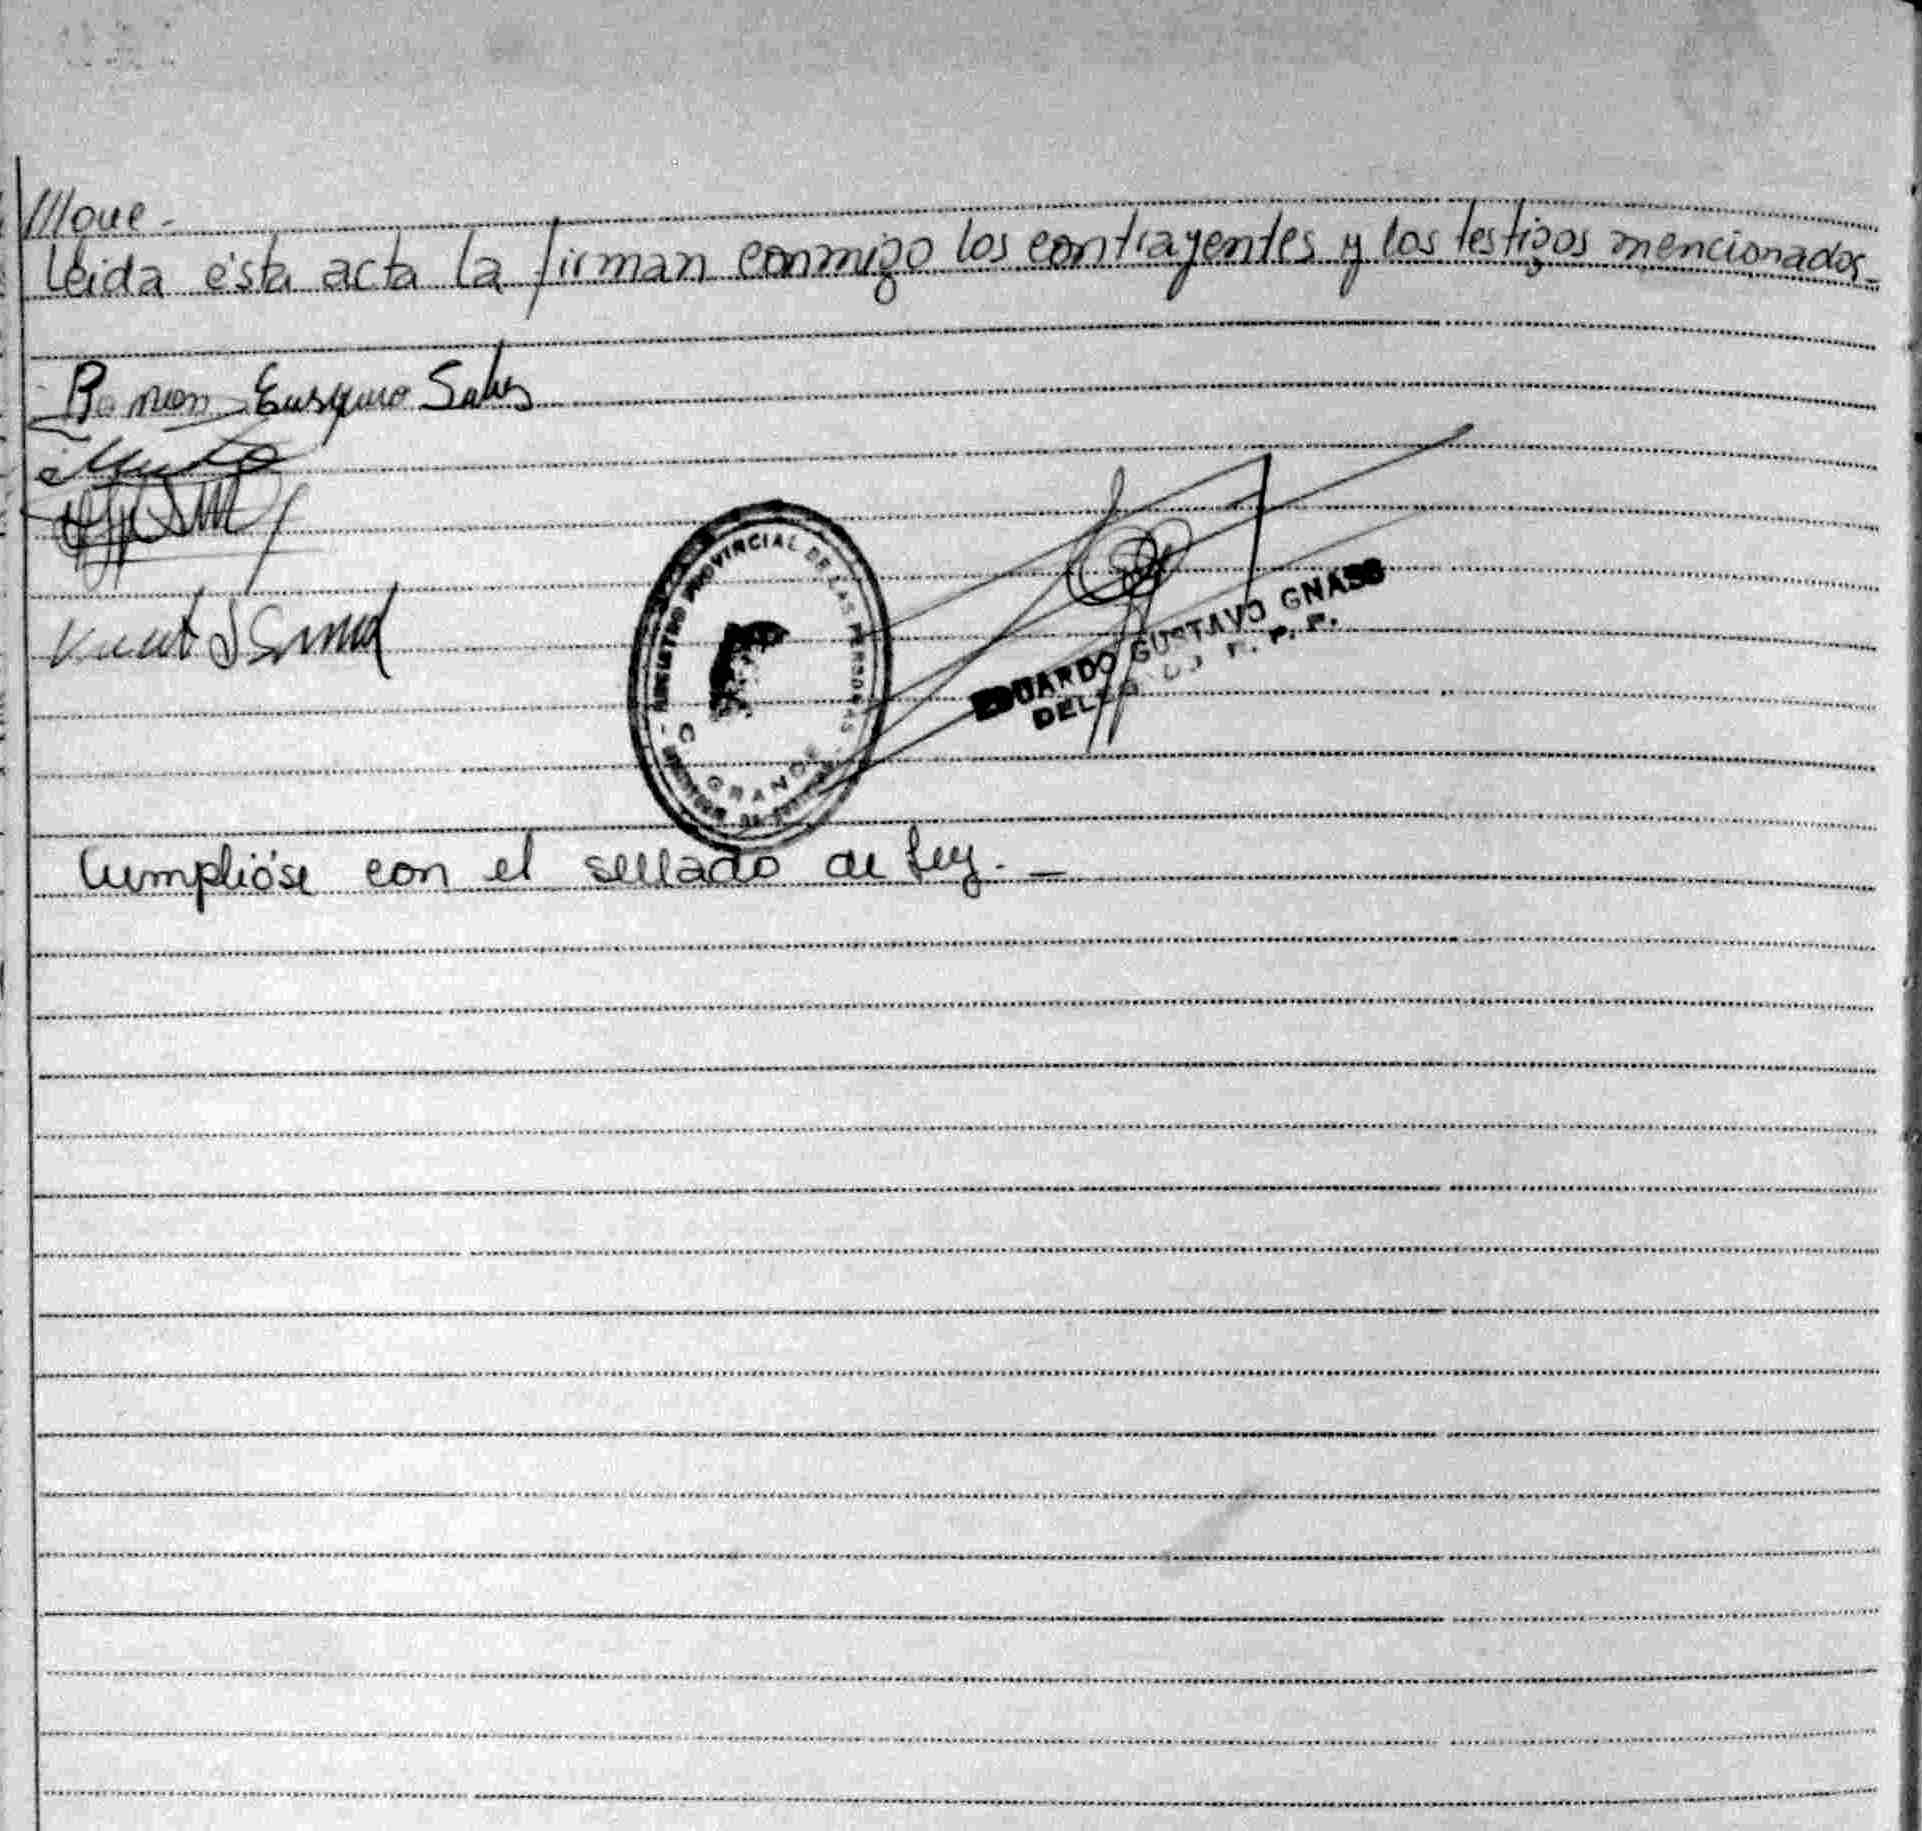 ///que.-
Leida ésta acta la firman conmigo los contrayentes y los testigos mencionados.-
Ramon Eusebio Sales
REGISTRO PROVINCIAL DE LAS PERSONAS
C. GRANDE
EDUARDO GUSTAVO GNASS
DELEGADO R. P. P.
Cumplióse con el sellado de ley.-